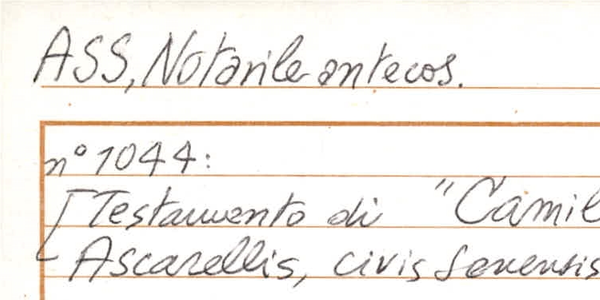 ASS, Notarile antecos.
n° 1044:
[Testamento di "Camil
Ascarellis, civis senensis